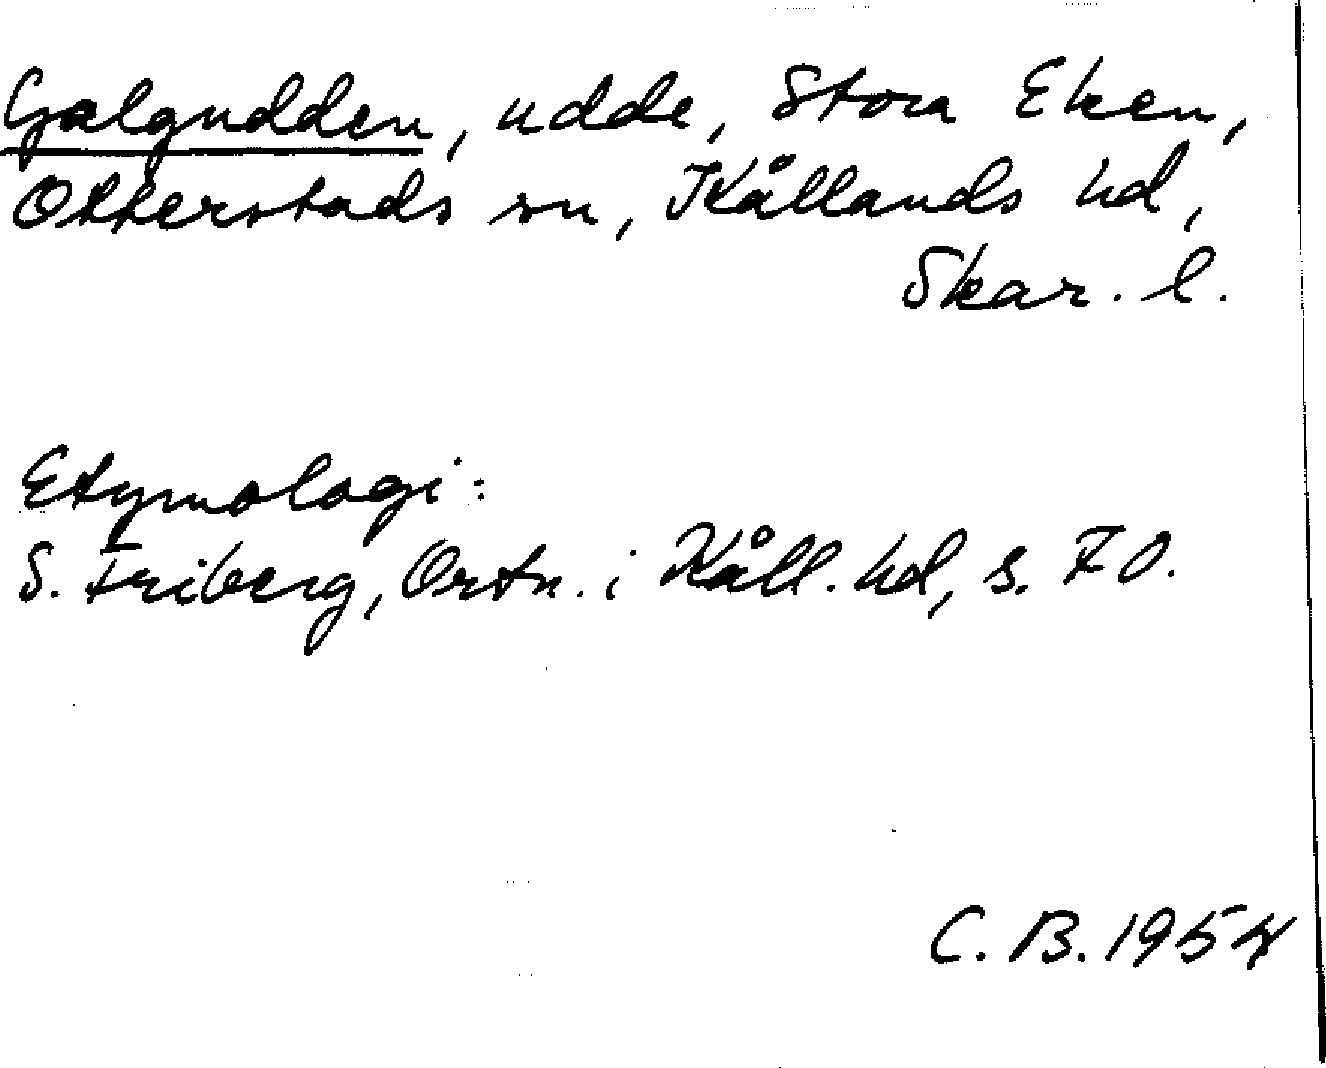 Galgudden, udde, Stora Eken,
Otterstads sn, Kållands hd,
Skar. l.
Etymologi:
S. Friberg, Ortn. i Kåll. hd, s. 70.
C. B. 1954